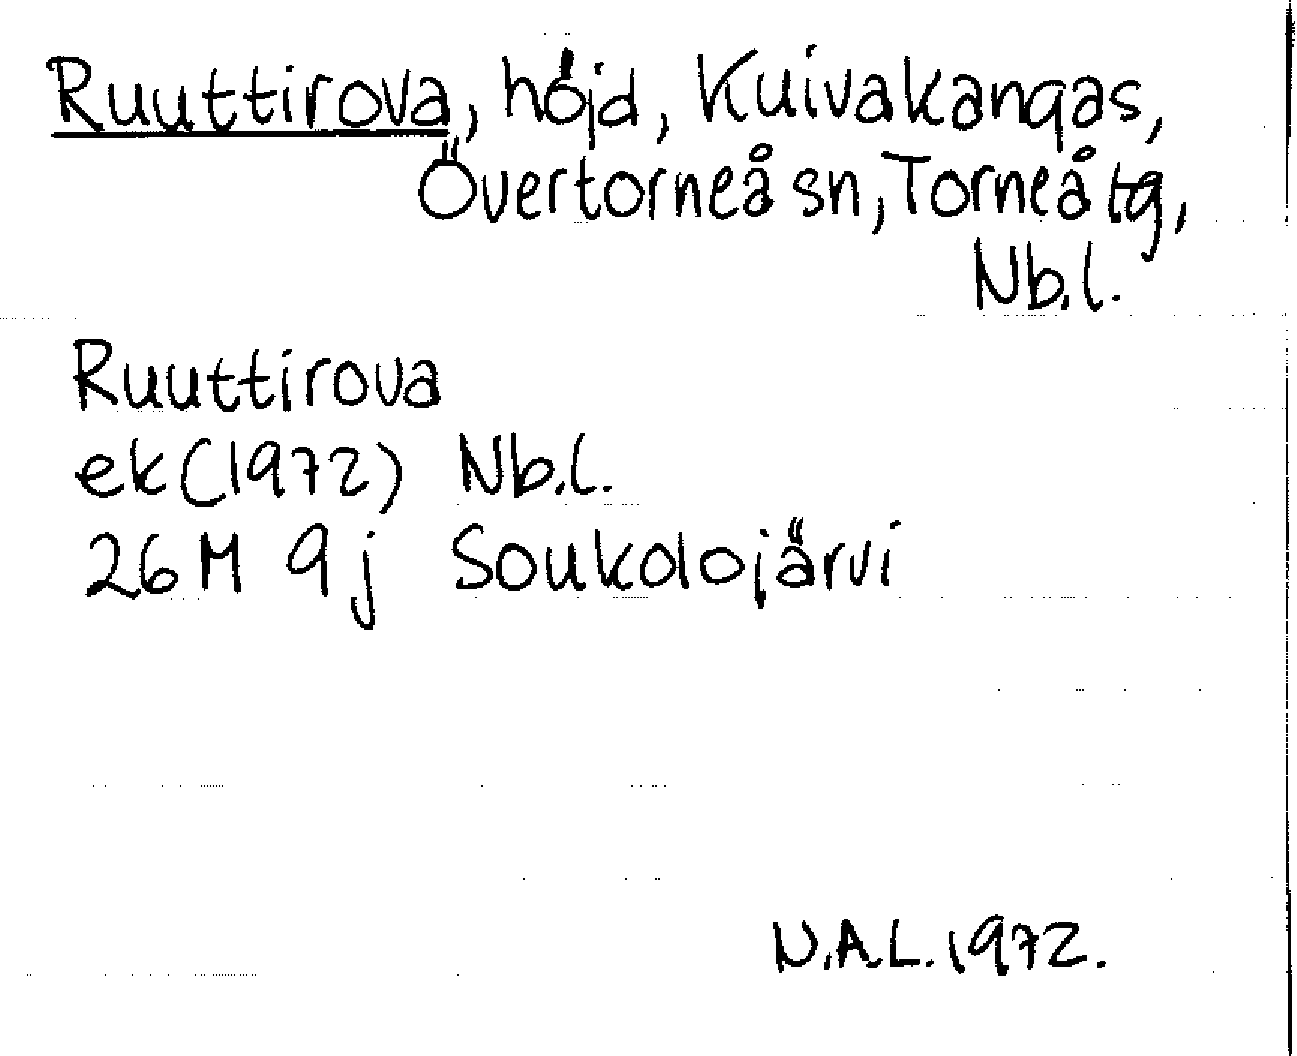 Ruuttirova, höjd, Kuivakangas,
Övertorneå sn, Torneå tg,
Nb.l.
Ruuttirova
ek (1972) Nb.l.
26 M 9 j Soukolojärvi
N.A.L. 1972.